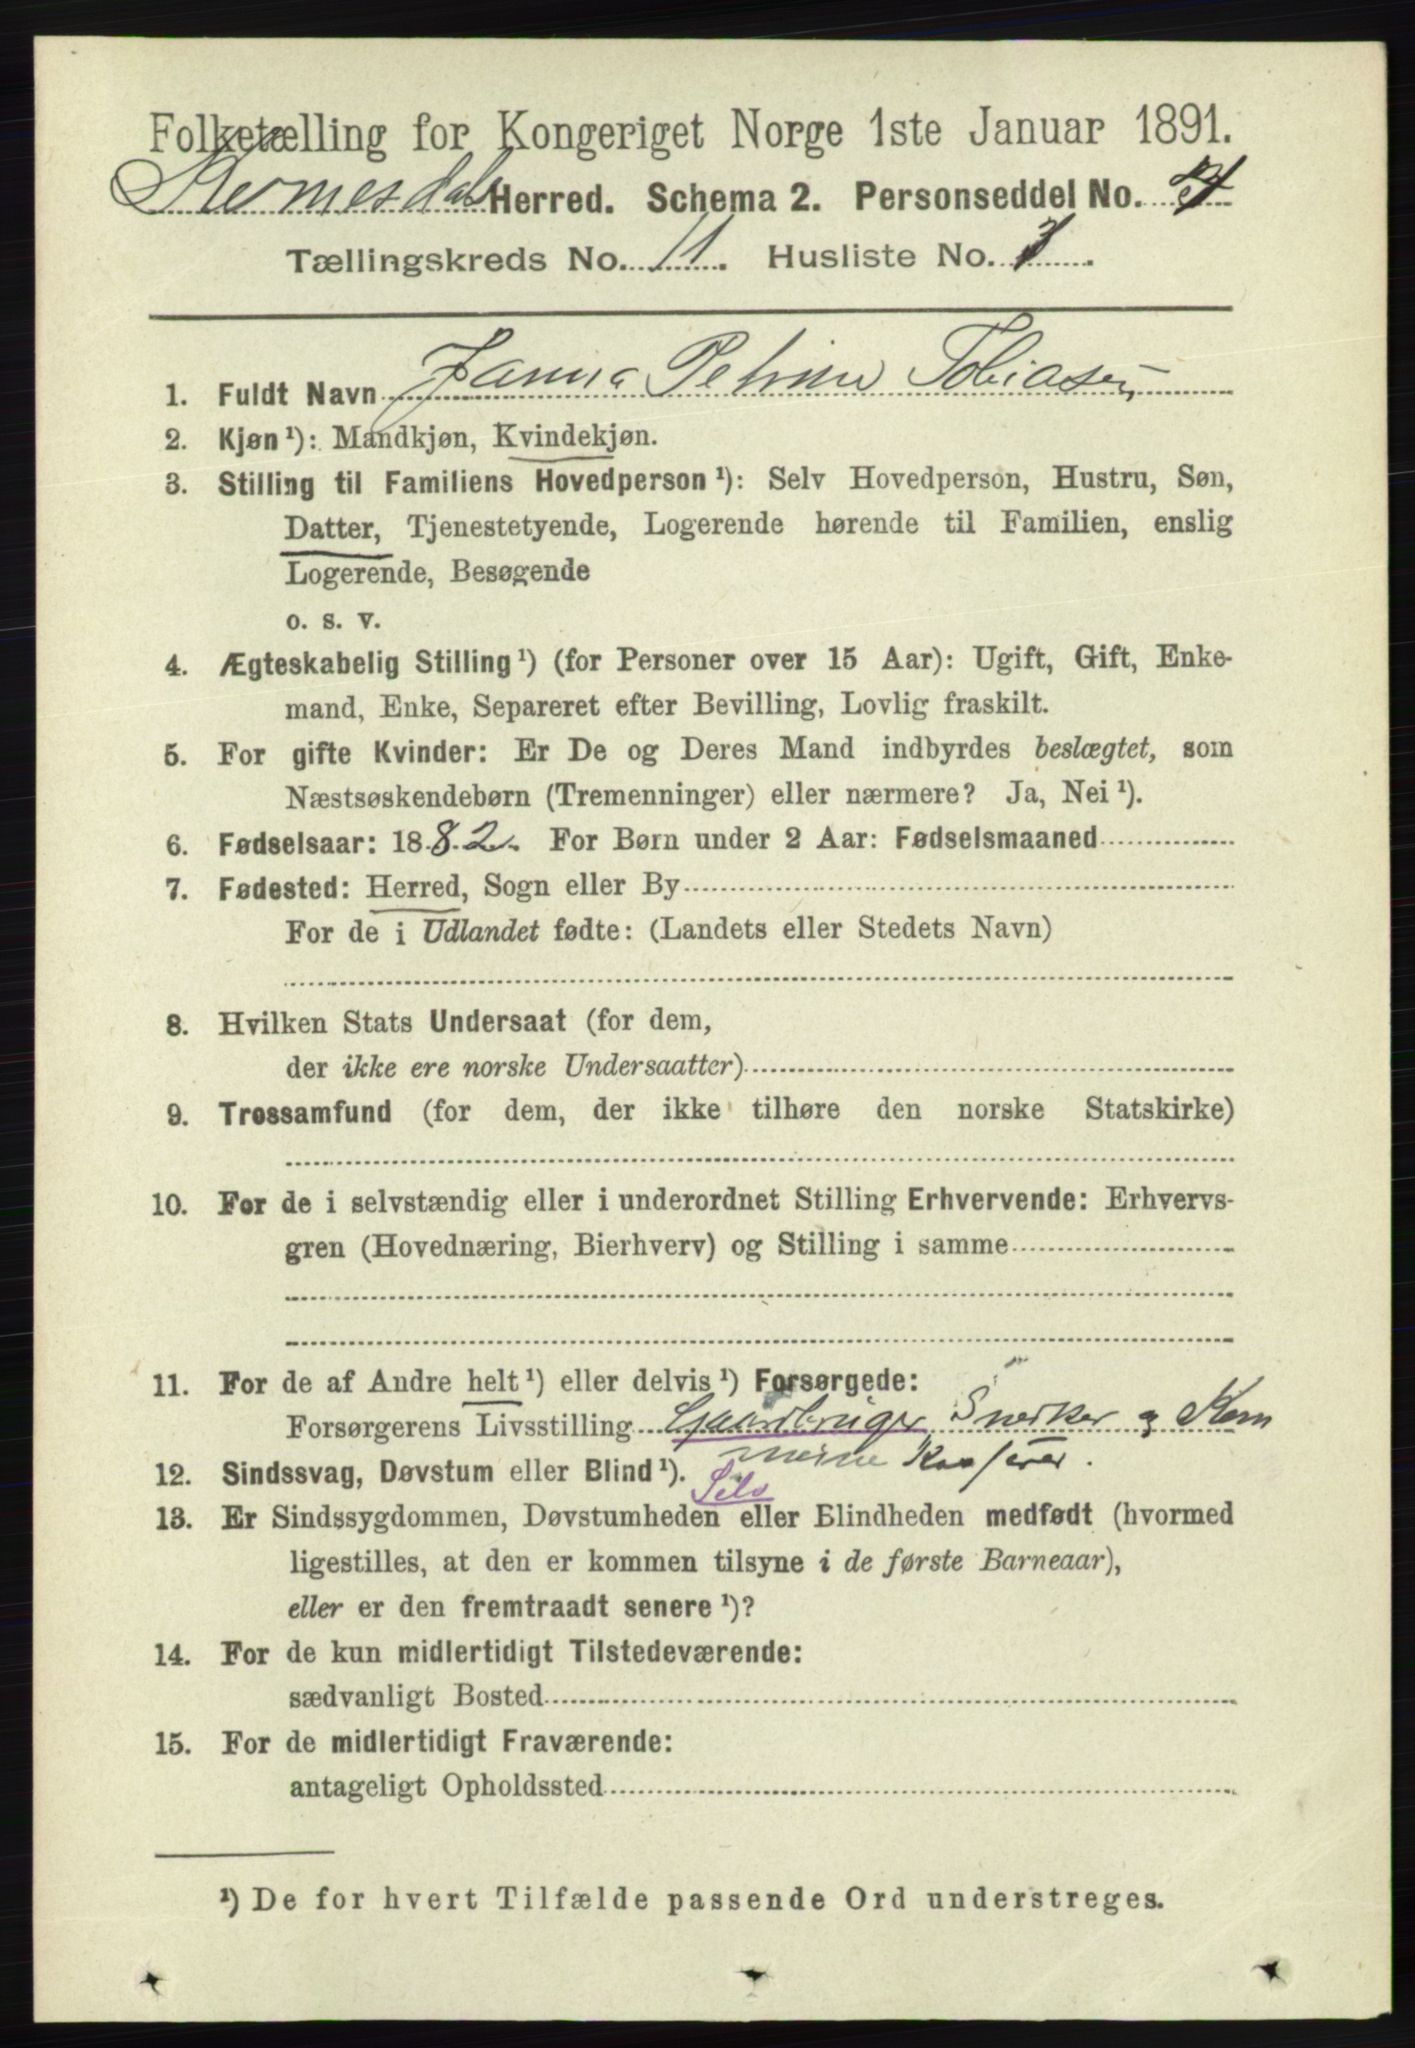 Folketælling for Kongeriget Norge 1ste Januar 1891.
Herred. Schema 2. Personseddel No.
Tællingskreds No. 11. Husliste No. 3.
1. Fuldt Navn Janna Petrine Tobiasen
2. Kjøn ¹): Mandkjøn, Kvindekjøn.
3. Stilling til Familiens Hovedperson ¹): Selv Hovedperson, Hustru, Søn,
Datter, Tjenestetyende, Logerende hørende til Familien, enslig
Logerende, Besøgende
o. s. v.
4. Ægteskabelig Stilling ¹) (for Personer over 15 Aar): Ugift, Gift, Enke-
mand, Enke, Separeret efter Bevilling, Lovlig fraskilt.
5. For gifte Kvinder: Er De og Deres Mand indbyrdes beslægtet, som
Næstsøskendebørn (Tremenninger) eller nærmere? Ja, Nei ¹).
6. Fødselsaar: 1882. For Børn under 2 Aar: Fødselsmaaned
7. Fødested: Herred, Sogn eller By
For de i Udlandet fødte: (Landets eller Stedets Navn)
8. Hvilken Stats Undersaat (for dem,
der ikke ere norske Undersaatter)
9. Trossamfund (for dem, der ikke tilhøre den norske Statskirke)
10. For de i selvstændig eller i underordnet Stilling Erhvervende: Erhvervs-
gren (Hovednæring, Bierhverv) og Stilling i samme
11. For de af Andre helt ¹) eller delvis ¹) Forsørgede:
Forsørgerens Livsstilling Gaardbruger Snedker og Kom
mune Kasserer.
12. Sindssvag, Døvstum eller Blind ¹).
Selv
13. Er Sindssygdommen, Døvstumheden eller Blindheden medfødt (hvormed
ligestilles, at den er kommen tilsyne i de første Barneaar),
eller er den fremtraadt senere ¹)?
14. For de kun midlertidigt Tilstedeværende:
sædvanligt Bosted
15. For de midlertidigt Fraværende:
antageligt Opholdssted
¹) De for hvert Tilfælde passende Ord understreges.